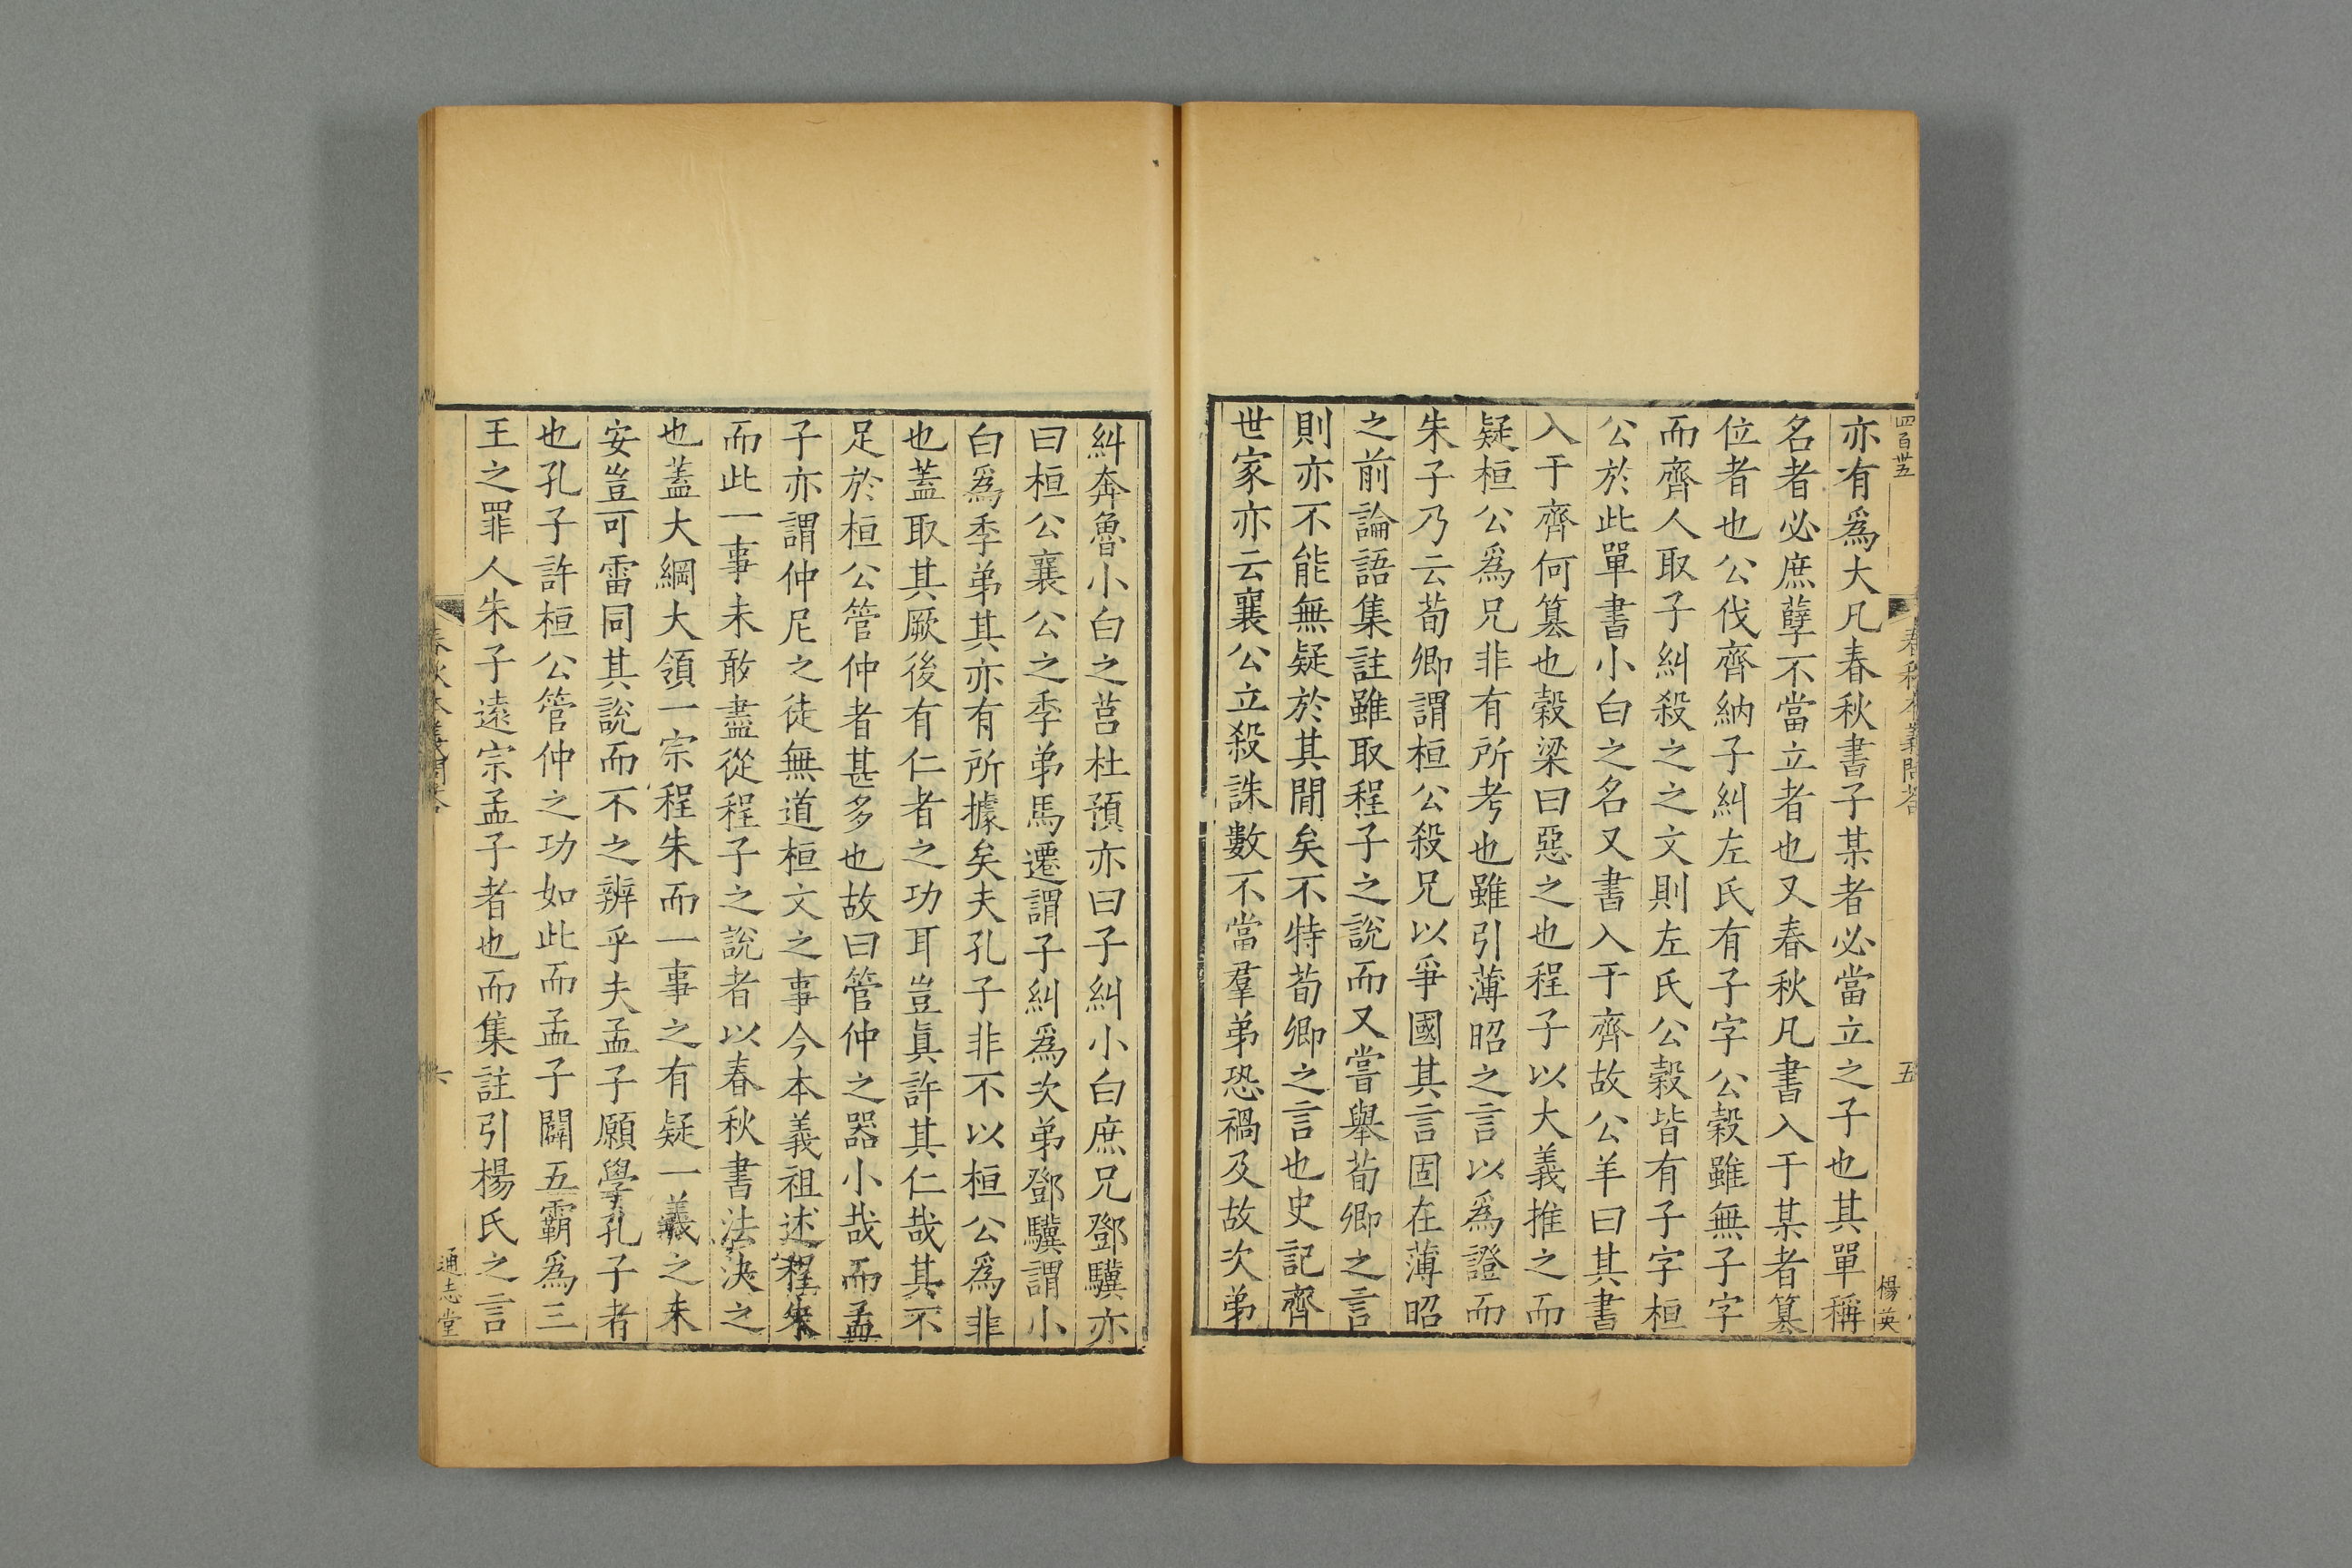 四百卅五
春秋本義問答
五
楊英
亦有爲大凡春秋書子某者必當立之子也其單稱
名者必庶孽不當立者也又春秋凡書入于某者篡
位者也公伐齊納子糾左氏有子字公糓雖無子字
而齊人取子糾殺之之文則左氏公糓皆有子字桓
公於此單書小白之名又書入于齊故公羊曰其書
入于齊何篡也糓梁曰惡之也程子以大義推之而
疑桓公爲兄非有所考也雖引薄昭之言以爲證而
朱子乃云荀卿謂桓公殺兄以爭國其言固在薄昭
之前論語集註雖取程子之說而又嘗舉荀卿之言
則亦不能無疑於其閒矣不特荀卿之言也史記齊
世家亦云襄公立殺誅數不當羣弟恐禍及故次弟
糾奔魯小白之莒杜預亦曰子糾小白庶兄鄧驥亦
曰桓公襄公之季弟馬遷謂子糾爲次弟鄧驥謂小
白爲季弟其亦有所據矣夫孔子非不以桓公爲非
也蓋取其厥後有仁者之功耳豈眞許其仁哉其不
足於桓公管仲者甚多也故曰管仲之器小哉而孟
子亦謂仲尼之徒無道桓文之事今本義祖述程朱
而此一事未敢盡從程子之說者以春秋書法決之
也蓋大綱大領一宗程朱而一事之有疑一義之未
安豈可雷同其說而不之辨乎夫孟子願學孔子者
也孔子許桓公管仲之功如此而孟子闢五霸爲三
王之罪人朱子遠宗孟子者也而集註引楊氏之言
春秋本義問答
六
通志堂